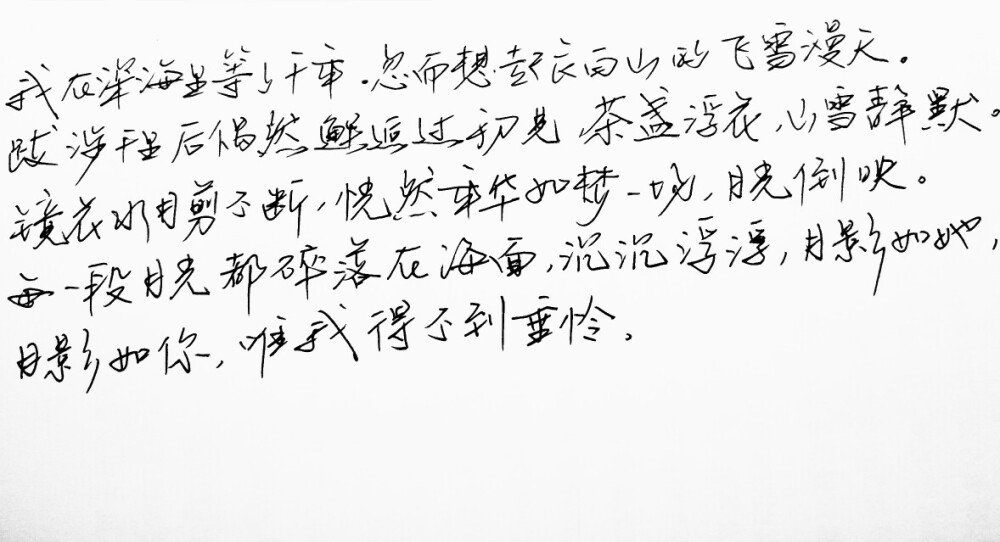 我在深海里等了千年.忽而想起长白山的飞雪漫天。
跋涉千里后偶然邂逅过初见 茶盏浮花,山雪静默。
镜花水月剪不断,恍然年华如梦一场,月光倒映。
每一段月光都碎落在海面,沉沉浮浮,月影如她,
月影如你,唯我得不到垂怜.